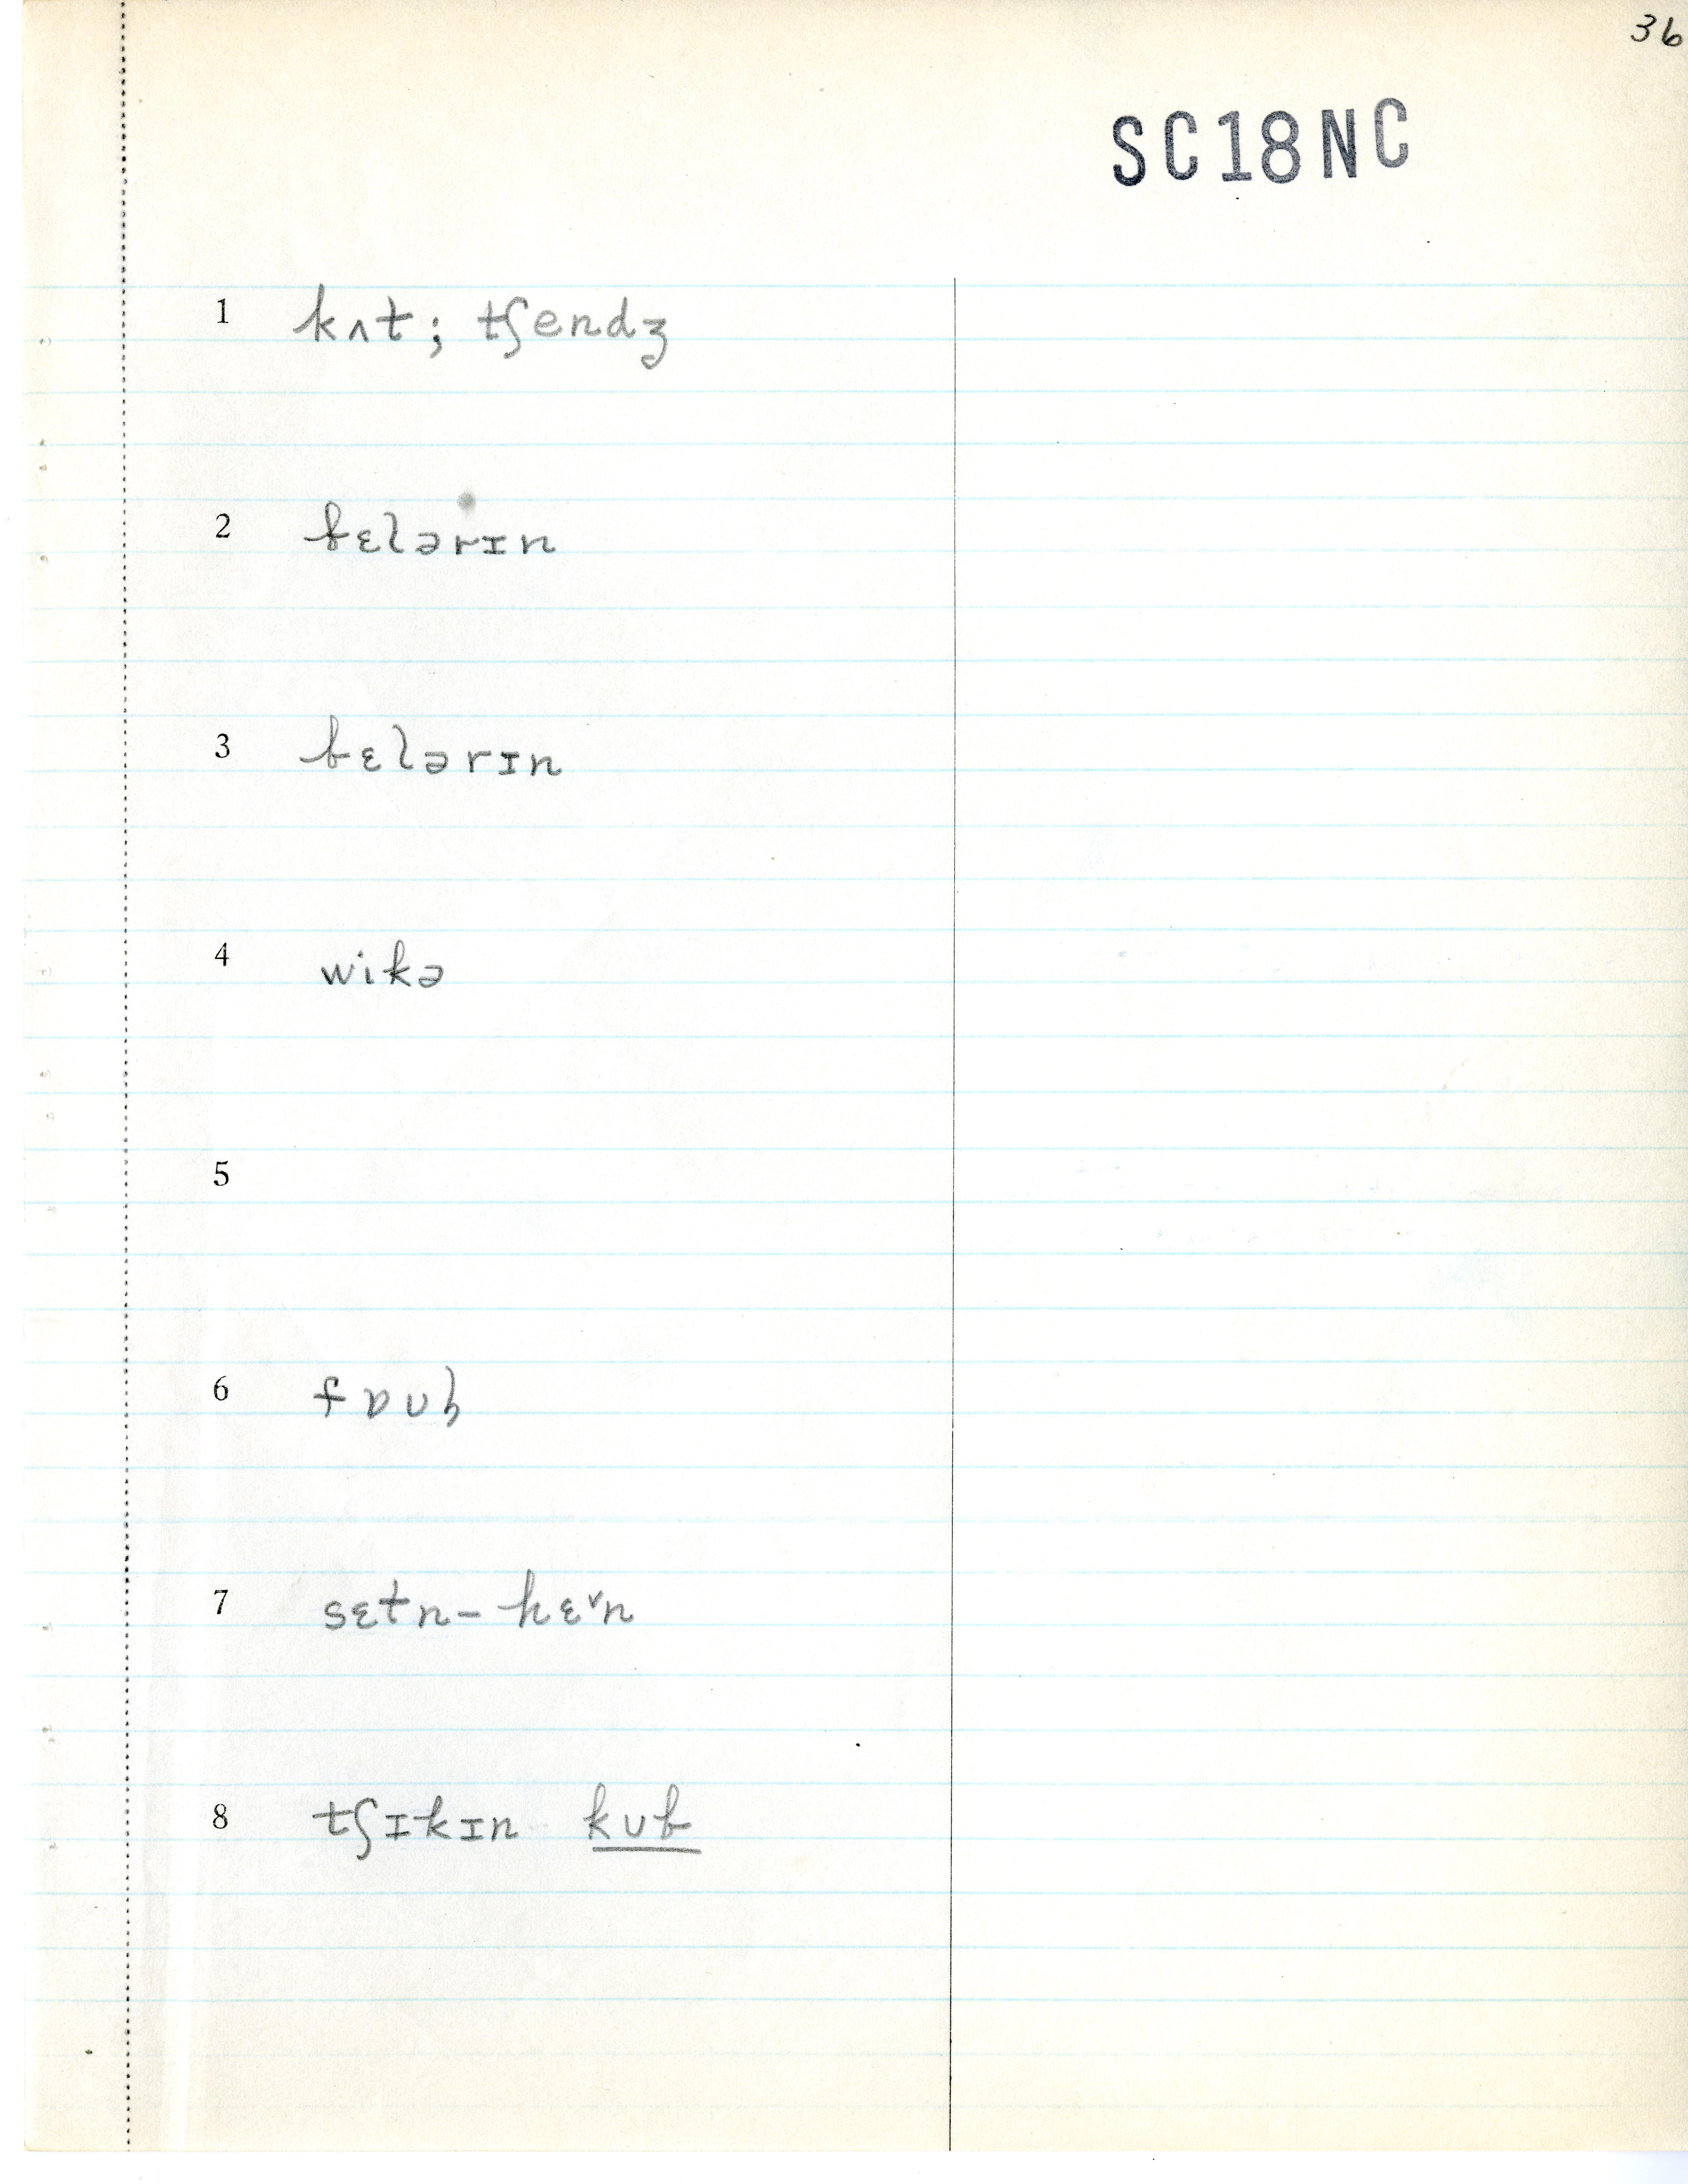 36
SC18NC
1 kʌt; tʃendʒ
2 bɛlərɪn
3 bɛlərɪn
4 wikə
5
6
7 sɛtn-hɛ˅n
8 tʃɪkɪn kʊb